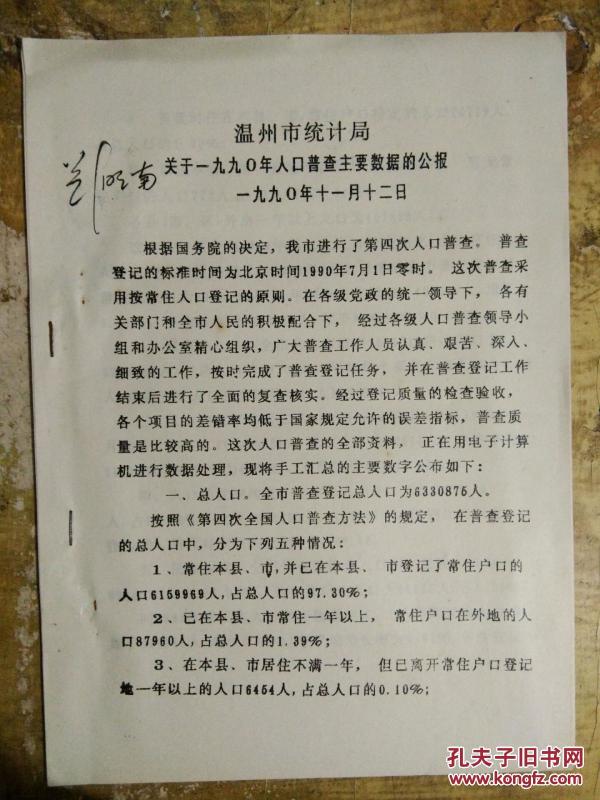 温州市统计局
关于一九九0年人口普查主要数据的公报
一九九0年十一月十二日
根据国务院的决定，我市进行了第四次人口普查。 普查
登记的标准时间为北京时间1990年7月1日零时。 这次普查采
用按常住人口登记的原则。在各级党政的统一领导下， 各有
关部门和全市人民的积极配合下， 经过各级人口普查领导小
组和办公室精心组织，广大普查工作人员认真、艰苦、深入、
细致的工作，按时完成了普查登记任务， 并在普查登记工作
结束后进行了全面的复查核实。经过登记质量的检查验收，
各个项目的差错率均低于国家规定允许的误差指标，普查质
量是比较高的。这次人口普查的全部资料， 正在用电子计算
机进行数据处理，现将手工汇总的主要数字公布如下：
一、总人口。全市普查登记总人口为6330875人。
按照《第四次全国人口普查方法》的规定， 在普查登记
的总人口中，分为下列五种情况：
1、常住本县、市，并已在本县、 市登记了常住户口的
人口6159969人，占总人口的97.30%；
2、已在本县、市常住一年以上， 常住户口在外地的人
口87960人，占总人口的1.39%；
3、在本县、市居住不满一年， 但已离开常住户口登记
地一年以上的人口6454人，占总人口的0.10%；
孔夫子旧书网
www.kongfz.com